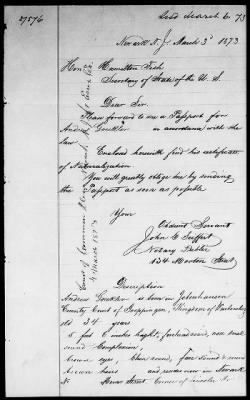 27576
Send March 6. 73
Newark N. J. March 3d 1873
Hon. Hamilton Fish
Secretary of State of the U. S.
Dear Sir
Please forward to me a Passport for
Andrew in accordance with the
law
Enclosed herewith find his certificate
of Naturalization
You will greatly oblige me by sending
the Passport as soon as possible
Your
Obedient Servant
John G Seiffert
Notary Public
134 Morton Street
Court of Common Pleas
4 March 1873
Description
Andrew is born in
County Court of Göppingen, Kingdom of
old 34 years
5 feet 6 inches hight, forehead round, nose small
round Complexion
brown eyes, Chin round, face round &
brown hairs and resides now in Newark
N. Street Corner of